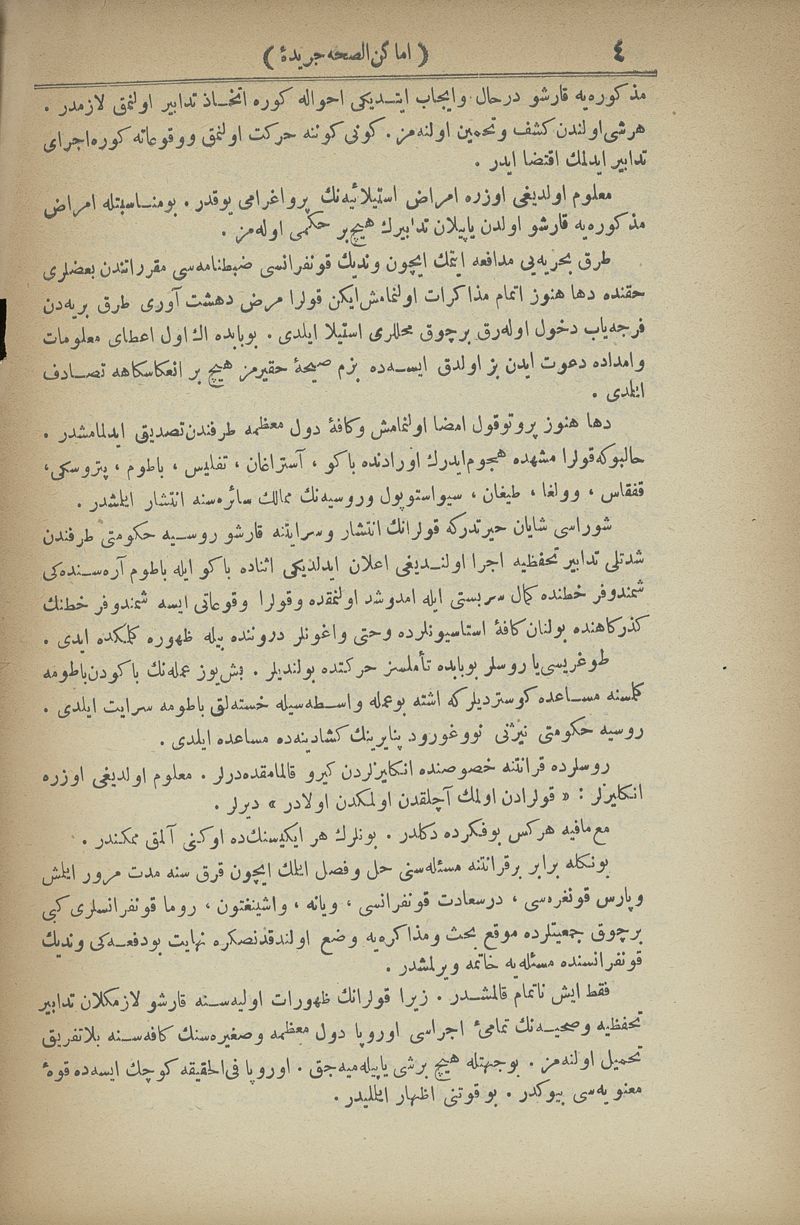 ٤
( اماكن الصحه جريدهٔ )
مذكوره‌يه قارشو درحال وايجاب ايتديكى احواله كوره اتخاذ تدابير اولنمق لازمدر .
هرشى اولندن كشف وتخمين اولنه‌مز . كونى كوننه حركت اولنمق ووقوعاته كوره اجراى
تدابير ايدلمك اقتضا ايدر .
معلوم اولديغى اوزره امراض استيلائيه‌نك پرواغرامى يوقدر . بومناسبتله امراض
مذكوره‌يه قارشو اولدن ياپيلان تدابيرك هيچ بر حكمى اوله‌مز .
طرق بحريه‌يى مدافعه ايتمك ايچون ونديك قونفرانسى ضبطنامه‌سى مقرراتندن بعضلرى
حقنده دها هنوز اتمام مذاكرات اولنمامش ايكن قولرا مرض دهشت آورى طرق بريه‌دن
فرجه‌ياب دخول اوله‌رق برچوق محللرى استيلا ايلدى . بوبابده اك اول اعطاى معلومات
وامداده دعوت ايدن بز اولدق ايسه‌ده بزم صيحهٔ حقيرمز هيچ بر انعكاسكاهه تصادف
ايلدى .
دها هنوز پروتوقول امضا اولنمامش وكافهٔ دول معظمه طرفندن تصديق ايدلمامشدر .
حالبوكه قولرا مشهده هجوم ايدرك اورادنده باكو ، آستراغان ، تفليس ، باطوم ، پتروسكى،
قفقاس ، وولغا ، طيغان ، سيواستوپول وروسيه‌نك ممالك سائره‌سنه انتشار ايلمشدر .
شوراسى شايان حيرتدركه قولرانك انتشار وسرايتنه قارشو روسيه حكومتى طرفندن
شدتلى تدابير تحفظيه اجرا اولنديغى اعلان ايدلديكى اثناده باكو ايله باطوم آره‌سنده‌كى
شمندوفر خطنده كمال سربستى ايله امدوشد اولنمقده وقولرا وقوعاتى ايسه شمندوفر خطنك
كذركاهنده بولنان كافهٔ استاسيونلرده وحتى واغونلر دروننده بيله ظهوره كلمكده ايدى .
طوغريسى يا روسلر بوبابده تأملسز حركتده بولنديلر . بش يوز عمله‌نك باكودن باطومه
كلمسنه مساعده كوسترديلركه اشته بوعمله واسطه‌سيله خسته‌لق باطومه سرايت ايلدى .
روسيه حكومتى نيژنى نووغورود پنايرينك كشادينه‌ده مساعده ايلدى .
روسلرده قرانتنه خصوصنده انكليزلردن كيرو قالمامقده‌درلر . معلوم اولديغى اوزره
انكليزلر : « قولرادن اولمك آچلقدن اولمكدن اولادر » ديرلر .
مع‌مافيه هركس بوفكرده دكلدر . بونلرك هر ايكيسنك‌ده اوكنى آلمق ممكندر .
بونكله برابر برقرانتنه مسئله‌سنى حل وفصل ايلمك ايچون قرق سنه مدت مرور ايلمش
وپارس قونغره‌سى ، درسعادت قونفرانسى ، ويانه ، واشينغتون ، روما قونفرانسلرى كبى
برچوق جمعيتلرده موقع بحث ومذاكره‌يه وضع اولندقدنصكره نهايت بودفعه‌كى ونديك
قونفرانسنده مسئله‌يه خاتمه ويرلمشدر .
فقط ايش ناتمام قالمشدر . زيرا قولرانك ظهورات اوليه‌سنه قارشو لازمكلان تدابير
تحفظيه وصحيه‌نك تمامئ اجراسى اوروپا دول معظمه وصغيره‌سنك كافه‌سنه بلاتفريق
تحميل اولنه‌مز . بوجهتله هيچ برشى ياپيله‌ميه‌جق . اوروپا فى‌الحقيقه كوچك ايسه‌ده قوهٔ
معنويه‌سى بيوكدر . بو قوتنى اظهار ايلمليدر .